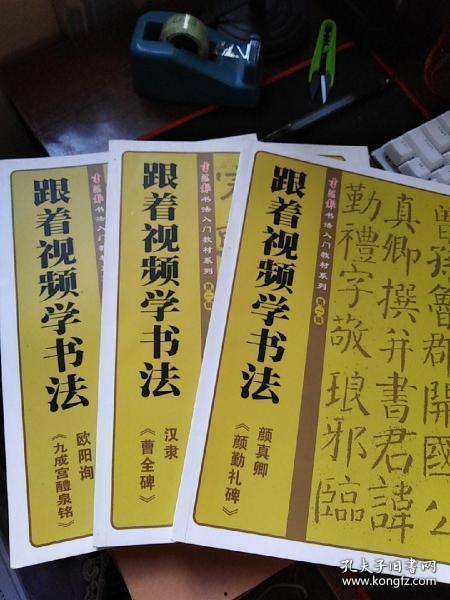 书法入
跟着视频学书法
欧阳询
《九成宫醴泉铭》
书法入门教材系列
第一辑
跟着视频学书法
汉隶
《曹全碑》
书法入门教材系列
第一辑
跟着视频学书法
颜真卿
《颜勤礼碑》
曾孫魯郡開國公
真卿撰并書君諱
勤禮字敬琅邪臨
孔夫子旧书网
www.kongfz.com